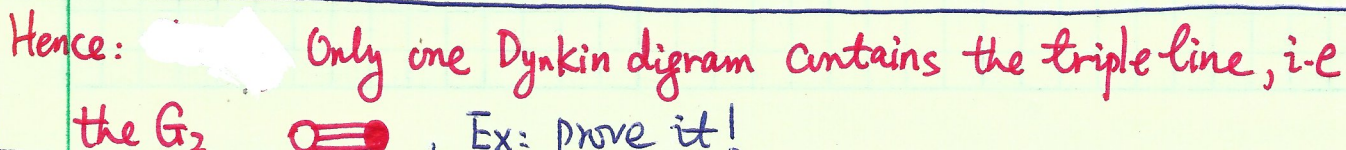 Hence: Only one Dynkin digram contains the triple line, i-e
the G₂ , Ex: prove it!